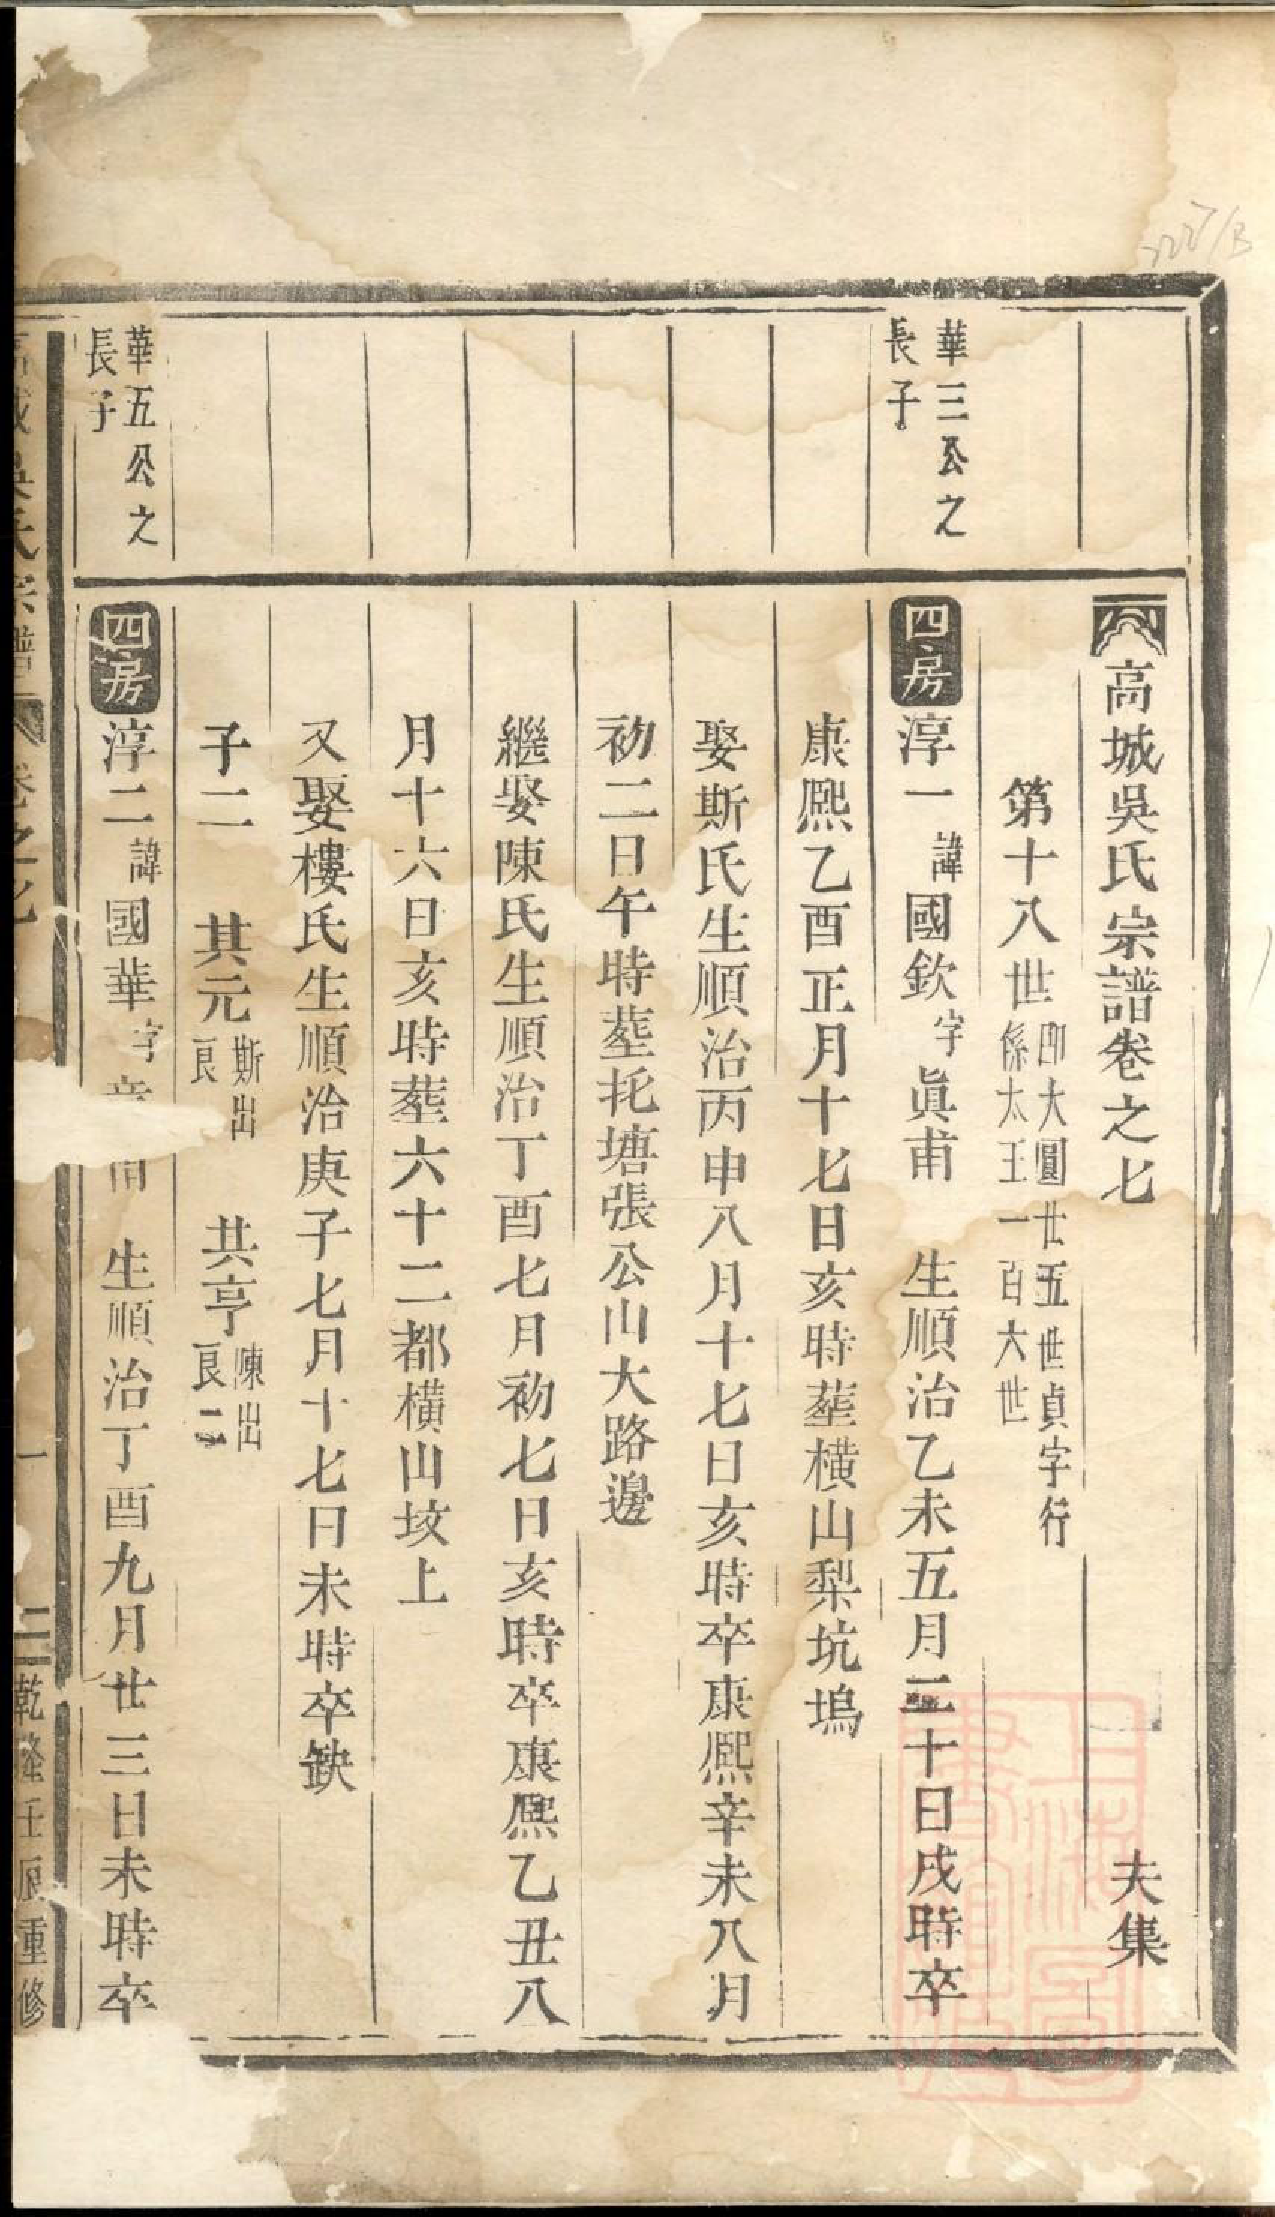 高城吳氏宗譜卷之七 夫集
第十八世 即大圓廿五世貞字行
係太王一百大世
華三公之
長子
四房 淳一 諱國欽 字眞甫 生順治乙未五月三十日戌時卒
康熙乙酉正月十七日亥時塟橫山梨坑塢
娶斯氏生順治丙申八月十七日亥時卒康熙辛未八月
初二日午時塟托塘張公山大路邊
繼娶陳氏生順治丁酉七月初七日亥時卒康熙乙丑八
月十六日亥時塟六十二都橫山坟上
又娶樓氏生順治庚子七月十七日未時卒缺
子二 其元 斯出 良一 共亨 陳出 良二
華五公之
長子
四房 淳二 諱國華 字 生順治丁酉九月廿三日未時卒
高城吳氏宗譜 卷之七 一 乾隆壬辰重修